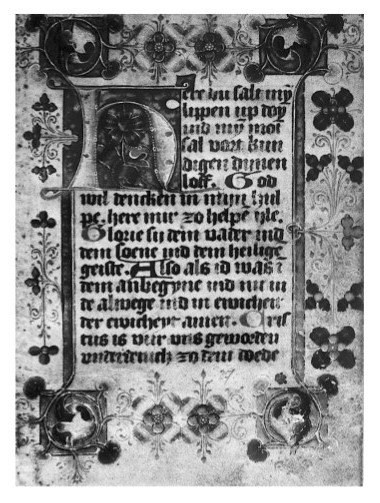 Here du salt myn
lippen up doyn
ind myn mot
sal vort kun
digen dynen
loff. God
wil dencken in myn hul
pe. here mir zo helpe yle.
Glorie sy dem vader ind
dem soene ind dem heilige
geiste. Also als id was i
dem anbegyne ind nu in
de alwege ind in ewicheit
der ewicheyt amen. Cris
tus is vur uns geworden
underdenich zo dem dode